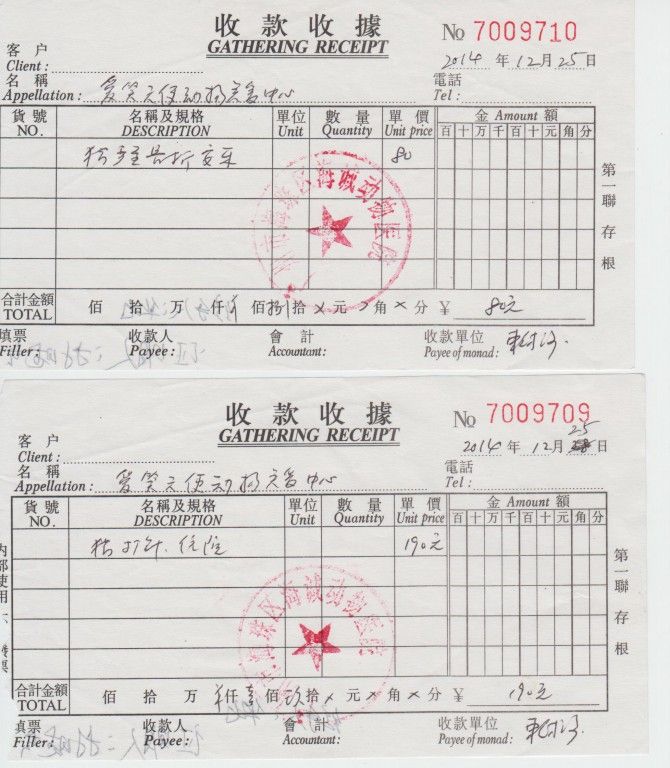 收款收據
GATHERING RECEIPT
No 7009710
2014 年 12月 25日
客户
Client:
名稱
Appellation: 爱笑天使动物 中心
電話
Tel:
貨號 名稱及規格 單位 數量 單價 金 Amount 額
NO. DESCRIPTION Unit Quantity Unit price 百 十 万 千 百 十 元 角 分
80
海珠区海诚动物医院
第一聯存根
合計金額 佰 拾 万 仟 佰 捌拾 × 元 × 角 × 分 ¥ 80元
TOTAL
填票 收款人 會計 收款單位
Filler: Payee: Accountant: Payee of monad:
收款收據
GATHERING RECEIPT
No 7009709
2014 年 12月 25 日
客户
Client:
名稱
Appellation: 爱笑天使动物 中心
電話
Tel:
貨號 名稱及規格 單位 數量 單價 金 Amount 額
NO. DESCRIPTION Unit Quantity Unit price 百 十 万 千 百 十 元 角 分
打针. 住院 190元
海珠区海诚动物医院
内部使用
第一聯存根
合計金額 佰 拾 万 仟 壹佰 玖拾 × 元 × 角 × 分 ¥ 190元
TOTAL
真票 收款人 會計 收款單位
Filler: Payee: Accountant: Payee of monad: